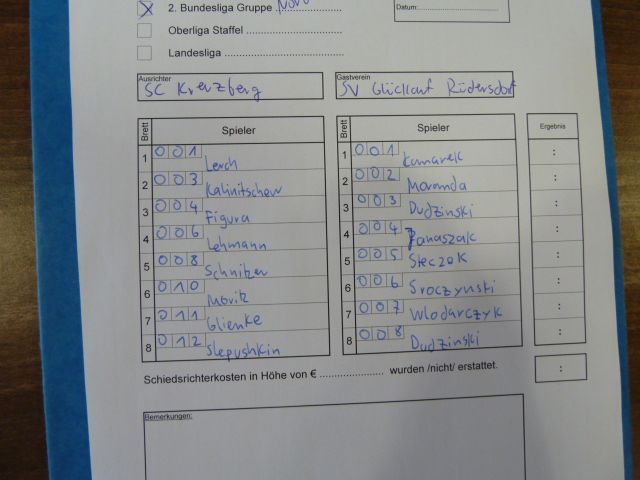 2. Bundesliga Gruppe Nord
Datum:
Oberliga Staffel
Landesliga
Ausrichter
SC Kreuzberg
Gastverein
SV Glückauf Rüdersdorf
Brett Spieler
1 001 Lerch
2 003 Kalinitschew
3 004 Figura
4 006 Lehmann
5 008 Schnitzer
6 010 Moritz
7 011 Glienke
8 012 Slepushkin
Brett Spieler Ergebnis
1 001 Kunarek :
2 002 Moranda :
3 003 Dudzinski :
4 004 Panaszak :
5 005 Steczek :
6 006 Sroczynski :
7 007 Wlodarczyk :
8 008 Dudzinski :
Schiedsrichterkosten in Höhe von € ........................ wurden /nicht/ erstattet. :
Bemerkungen: